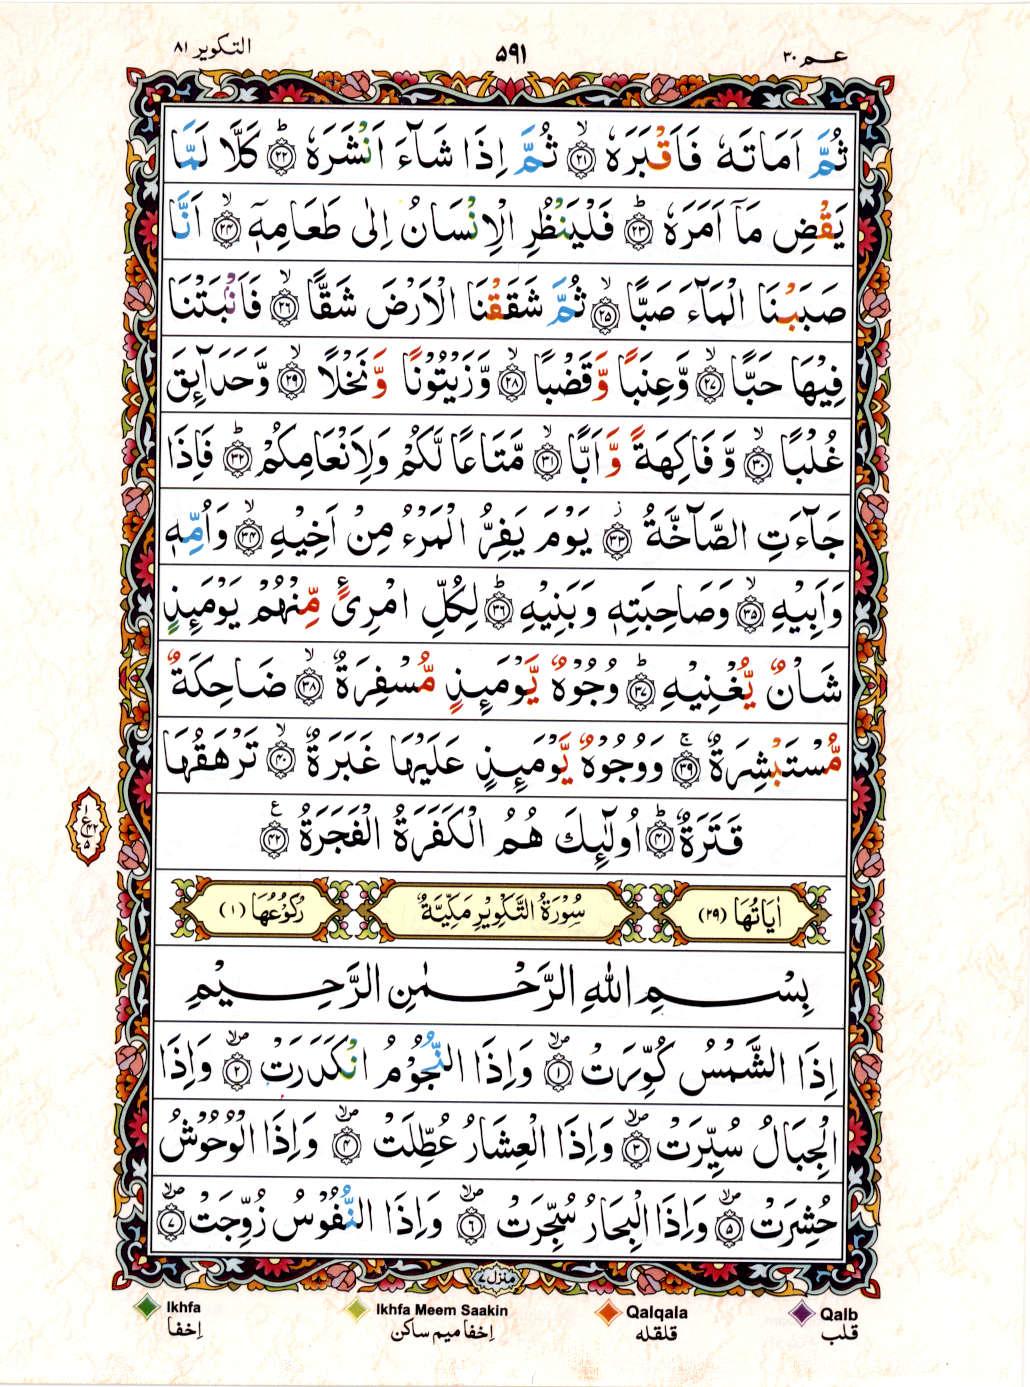 عـم ٣٠ ٥٩١ التكوير ٨١
ثُمَّ اَمَاتَهٗ فَاَقْبَرَهٗ ۙ﴿۲۱﴾ ثُمَّ اِذَا شَآءَ اَنْشَرَهٗ ؕ﴿۲۲﴾ كَلَّا لَمَّا
يَقْضِ مَاۤ اَمَرَهٗ ؕ﴿۲۳﴾ فَلْيَنْظُرِ الْاِنْسَانُ اِلٰى طَعَامِهٖۤ ۙ﴿۲۴﴾ اَنَّا
صَبَبْنَا الْمَآءَ صَبًّا ۙ﴿۲۵﴾ ثُمَّ شَقَقْنَا الْاَرْضَ شَقًّا ۙ﴿۲۶﴾ فَاَنْۢبَتْنَا
فِيْهَا حَبًّا ۙ﴿۲۷﴾ وَّعِنَبًا وَّقَضْبًا ۙ﴿۲۸﴾ وَّزَيْتُوْنًا وَّنَخْلًا ۙ﴿۲۹﴾ وَّحَدَآئِقَ
غُلْبًا ۙ﴿۳۰﴾ وَّفَاكِهَةً وَّاَبًّا ۙ﴿۳۱﴾ مَّتَاعًا لَّكُمْ وَلِاَنْعَامِكُمْ ؕ﴿۳۲﴾ فَاِذَا
جَآءَتِ الصَّآخَّةُ ؗ﴿۳۳﴾ يَوْمَ يَفِرُّ الْمَرْءُ مِنْ اَخِيْهِ ۙ﴿۳۴﴾ وَاُمِّهٖ
وَاَبِيْهِ ۙ﴿۳۵﴾ وَصَاحِبَتِهٖ وَبَنِيْهِ ؕ﴿۳۶﴾ لِكُلِّ امْرِئٍ مِّنْهُمْ يَوْمَئِذٍ
شَاْنٌ يُّغْنِيْهِ ؕ﴿۳۷﴾ وُجُوْهٌ يَّوْمَئِذٍ مُّسْفِرَةٌ ۙ﴿۳۸﴾ ضَاحِكَةٌ
مُّسْتَبْشِرَةٌ ۚ﴿۳۹﴾ وَوُجُوْهٌ يَّوْمَئِذٍ عَلَيْهَا غَبَرَةٌ ۙ﴿۴۰﴾ تَرْهَقُهَا
قَتَرَةٌ ؕ﴿۴۱﴾ اُولٰٓئِكَ هُمُ الْكَفَرَةُ الْفَجَرَةُ ﴿۴۲﴾ ع
١
ع ٤٢
٥
اٰيَاتُهَا (٢٩) سُوْرَةُ التَّكْوِيْرِ مَكِّيَّةٌ رُكُوْعُهَا (١)
بِسْمِ اللهِ الرَّحْمٰنِ الرَّحِيْمِ
اِذَا الشَّمْسُ كُوِّرَتْ ۪ۙ﴿۱﴾ وَاِذَا النُّجُوْمُ انْكَدَرَتْ ۪ۙ﴿۲﴾ وَاِذَا
الْجِبَالُ سُيِّرَتْ ۪ۙ﴿۳﴾ وَاِذَا الْعِشَارُ عُطِّلَتْ ۪ۙ﴿۴﴾ وَاِذَا الْوُحُوْشُ
حُشِرَتْ ۪ۙ﴿۵﴾ وَاِذَا الْبِحَارُ سُجِّرَتْ ۪ۙ﴿۶﴾ وَاِذَا النُّفُوْسُ زُوِّجَتْ ۪ۙ﴿۷﴾
منزل ۷
Ikhfa Ikhfa Meem Saakin Qalqala Qalb
اِخفا اِخفا میم ساکن قلقله قلب